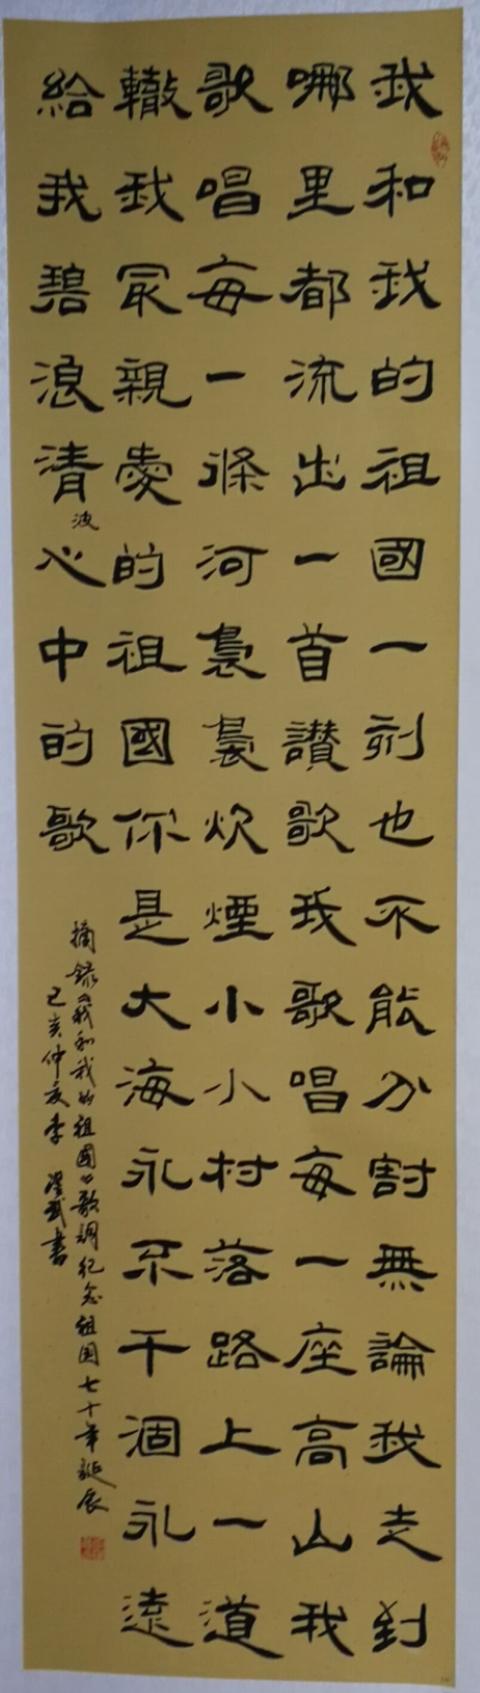 我和我的祖國一刻也不能分割無論我走到
哪里都流出一首讃歌我歌唱每一座高山我
歌唱每一條河裊裊炊煙小小村落路上一道
轍我最親愛的祖國你是大海永不干涸永遠
給我碧浪清波心中的歌
摘録《我和我的祖國》歌詞紀念祖国七十年誕辰
己亥仲夏李武書